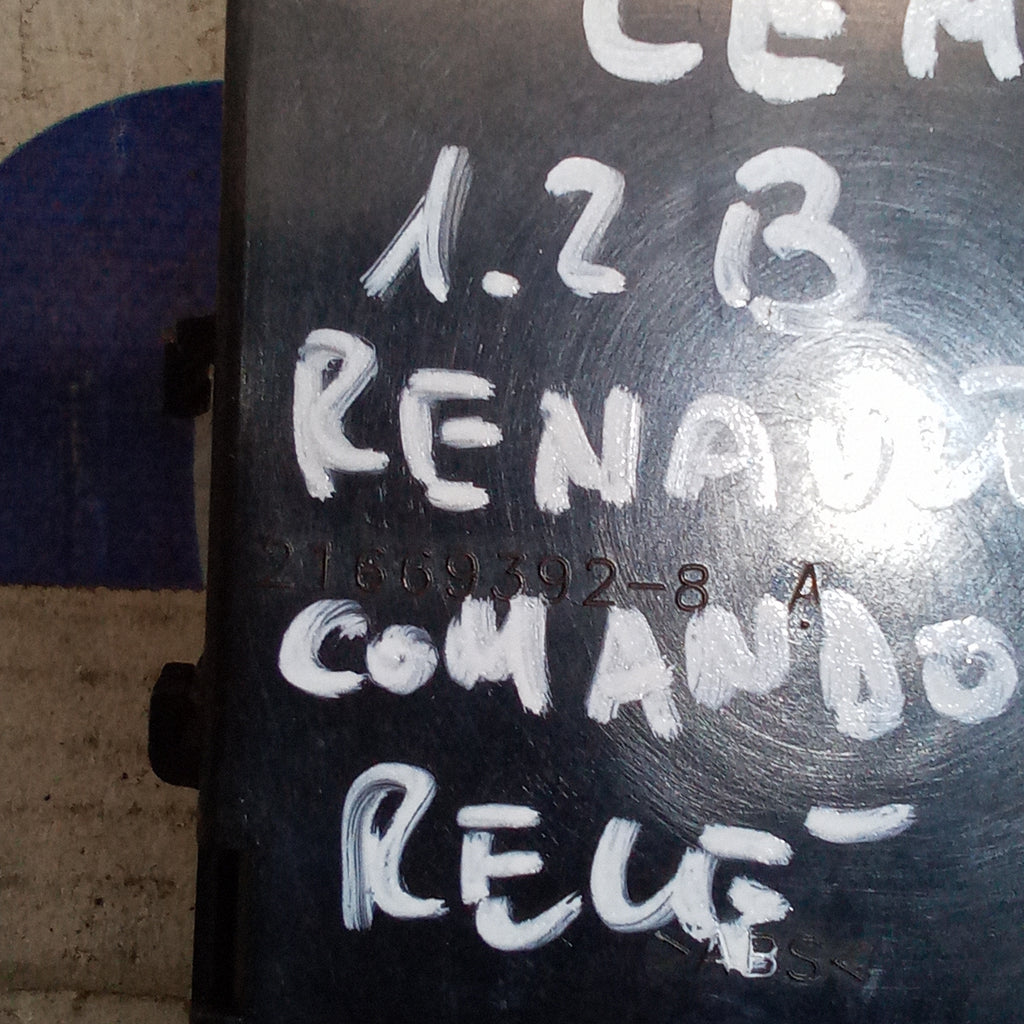 1.2 B
RENAULT
21669392-8 A
COMANDO
RELE'
>ABS<